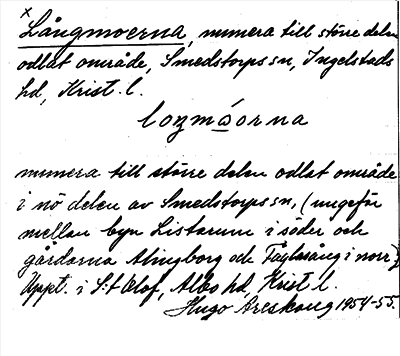 x
Långmoerna, numera till större delen
odlat område, Smedstorps sn, Ingelstads
hd, Krist. l.
lozmoorna
numera till större delen odlat område
i nö delen av Smedstorps sn, (ungefär
mellan byn Listarum i söder och
gårdarna Alingborg och Fågelsång i norr).
Uppt. i S:t Olof, Albo hd, Krist. l.
Hugo Areskoug 1954-55.